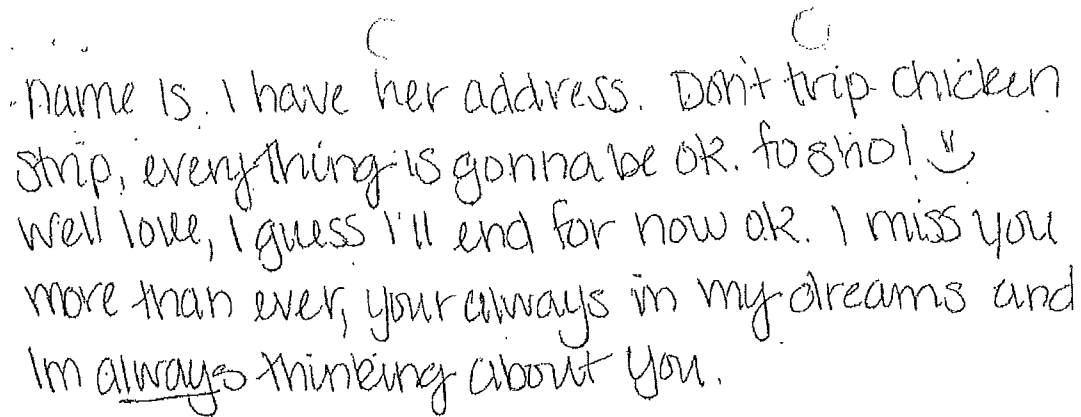 name is. I have her address. Don't trip chicken
strip, everything is gonna be ok. fo sho! :)
Well love, I guess I'll end for now ok. I miss you
more than ever, your always in my dreams and
Im always thinking about you.